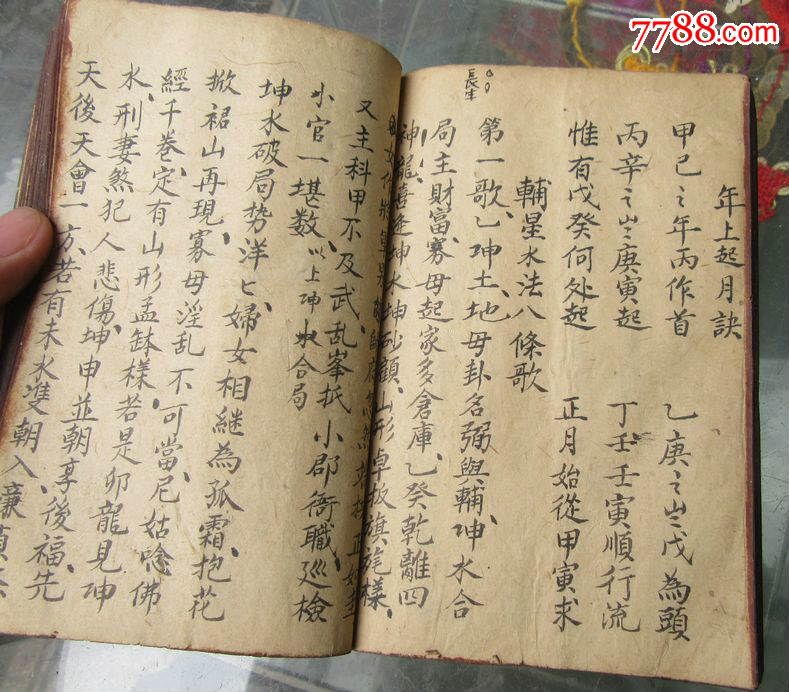 7788.com
年上起月訣
甲己之年丙作首 乙庚之岁戊為頭
丙辛之岁庚寅起 丁壬壬寅順行流
惟有戊癸何处起 正月始從甲寅求
輔星水法八條歌
長生
第一歌、乙坤土、地母卦名弼與輔、坤水合
局主財富、寡母起家多倉庫、乙癸乾離四
神龍喜逢坤水坤砂顧、山形卓板旗旄樣、
又主科甲不及武、乱峯抵小郡衙職、巡檢
小官一堪数、以上坤水合局
坤水破局势洋匕、婦女相継為孤霜、抱花
掀裙山再現、寡母淫乱不可當、尼姑唸佛
經千卷、定有山形孟缽樣若是卯龍見坤
水、刑妻煞犯人悲傷、坤申並朝享後福、先
天後天會一方、若有未水雙朝入廉